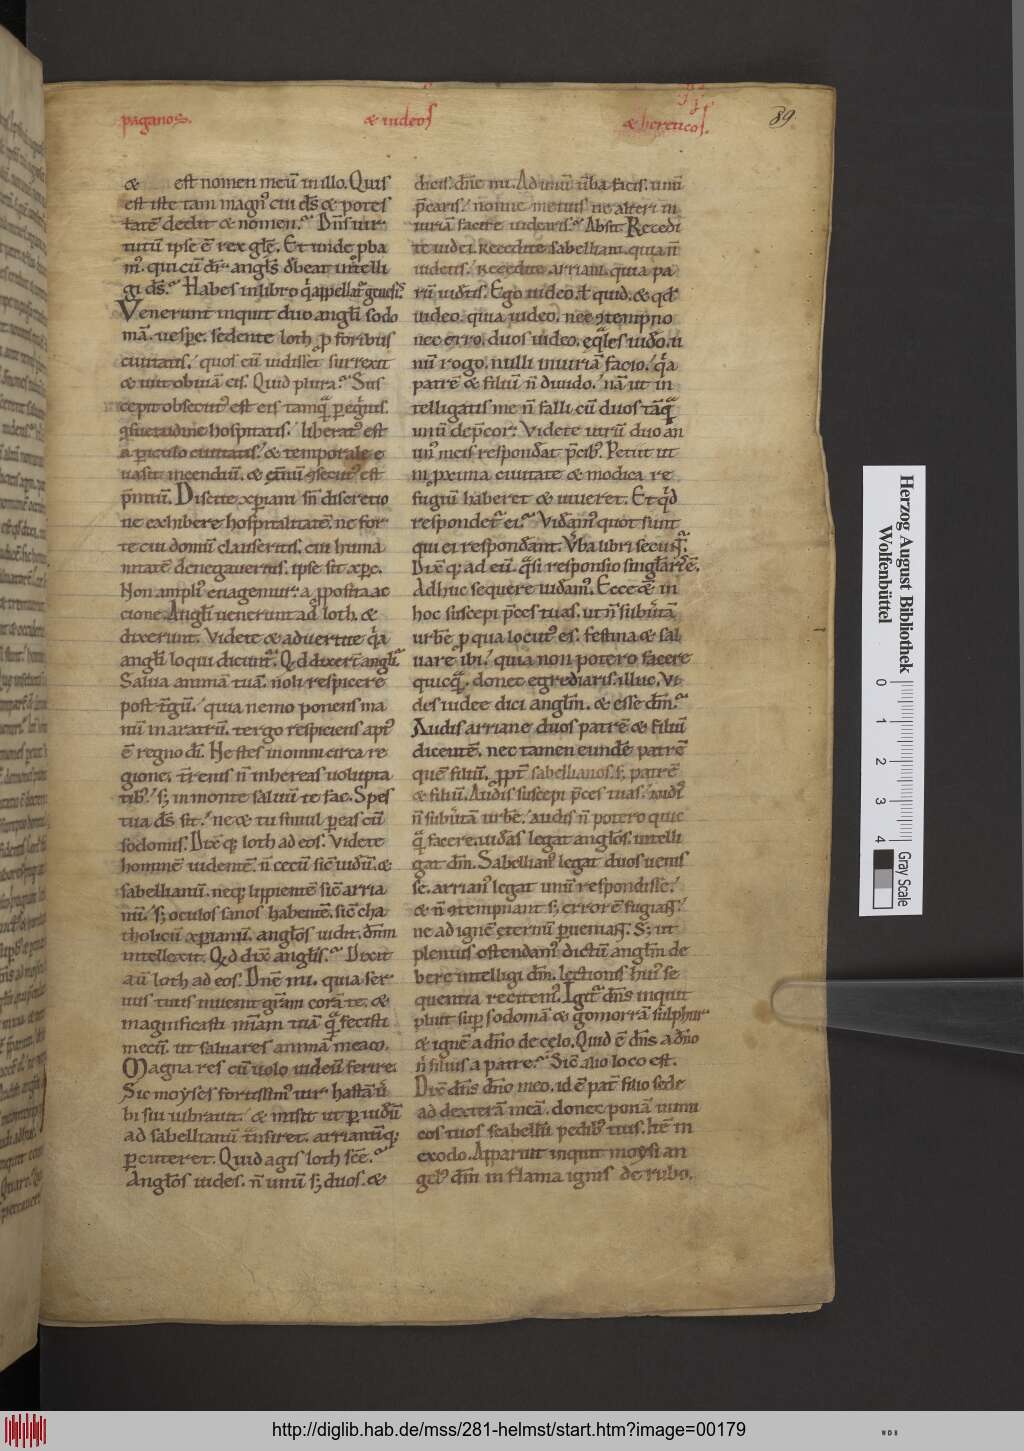 paganos. & iudeos & hereticos. 89
& est nomen meū in illo. Quis
est iste tam magn᾽ cui d̄s & potes
tatē dedit & nomen.᾽ Dn̄s uir
tutū ipse ē rex glę̄. Et unde ꝓba
m᾽. qui cū dr̄ angl̄s d̄beat intelli
gi d̄s.᾽ Habes in libro q̇ appellat᾽ genesis᾽.
Venerunt inquit duo angl̄i sodo
mā. uesp̱e. sedente loth ꝓ foribus
ciuitatis.᾽ quos cū uidisset surrexit
& iuit obuiā eis. Quid plura.᾽ Sus
cepit obsecut᾽ est eis tamq̄ ꝑegr̄is.
ꝯsuetudine hospitatis.᾽ liberat᾽ est
a ꝑiculo ciuitatis.᾽ & temporale e
uasit incendiū. & et̄nū ꝯsecut᾽ est
p̄miū. Discite xp̄iani sn̄ discretio
ne exhibere hospitalitatē. ne for
te cui domū clauseritis. cui huma
nitatē denegaueritis. ipse sit xp̄c.
Non ampli᾽ euagemur. a ꝓposita ac
cione. Angl̄i uenerunt ad loth. &
dixerunt. Videte & aduertite q̇a
angl̄i loqui dicunt᾽. Qd dixert̄ angl̄i.᾽
Salua animā tuā. noli respicere
post t̄gū.᾽ quia nemo ponens ma
nū in aratrū. tergo respiciens apt᾽
ē regno dī. Ne stes in omni circa re
gione. t̄renis n̄ inhereas uolupta
tib᾽.᾽ s; in monte saluū te fac. Spes
tua d̄s sit.᾽ ne & tu simul ꝑeas cū
sodomis. Dix̄ q; loth ad eos. Videte
hominē uidentē. n̄ cecū sic̄ iudū. &
sabellianū. neq; lippientē sic̄ arria
nū.᾽ s; oculos sanos habentē. sic̄ cha
tholicū xp̄ianū. angl̄os uidit. dn̄m
intellexit. Qd dix̄ angl̄is.᾽ Dixit
aū loth ad eos. Dn̄e mi. quia ser
uus tuus inuenit gr̄am corā te. &
magnificasti mīam tuā q̄ fecisti
mecū. ut saluares animā meam.
Magna res cū uolo iudeū ferire.
Sic moyses fortissim᾽ uir hastā u᾽
bi sui uibrauit.᾽ & misit ut ꝑ iudū
ad sabellianū t̄nsiret. arrianūq;
ꝑcuteret. Quid agis loth scē.᾽
Angl̄os uides. n̄ unū s; duos. &
dicis. dn̄e mi. Ad unū ūba facis. unū
p̄caris.᾽ nonne metuis ne alteri in
iuriā facere uidearis.᾽ Absit. Recedi
te iudei. recedite sabelliani. quia n̄
iudeus.᾽ recedite arriani. quia pa
rū uid̄tis. Ego uideo. & quid. & qd
uideo. quia uideo. nec ꝯtempno
nec erro. duos uideo. eq̄les uid̄o. u
nū rogo. nulli iniuriā facio.᾽ q̇a
patrē & filiū n̄ diuido.᾽ nā ut in
telligatis me n̄ falli cū duos tāq̄
unū dep̄cor. Videte utrū duo an
un᾽ meis respondat p̄cib᾽. Petiit ut
in ꝓxima ciuitate & modica re
fugiū haberet & uiueret. Et q̇d
respondet᾽ ei.᾽ Vidam᾽ quot sunt
qui ei respondant. Vba libri secuq̄.
Dix̄ q; ad eū. q̄si responsio singlarīs ē.
Adhuc sequere uidam᾽. Ecce & in
hoc suscepi p̄ces tuas. ut n̄ subūtā
urbē ꝓ qua locut᾽ es. festina & sal
uare ibi.᾽ quia non potero facere
quicq̄. donec egrediaris illuc. Vi
des iudee dici anglm̄. & esse dm̄.᾽
Audis arriane duos patrē & filiū
dicentē. nec tamen eundē patrē
quē filiū. ꝓpt᾽ sabellianos. s; patrē
& filiū. Audis suscepi p̄ces tuas.᾽ audi᾽
n̄ subūtā urbē.᾽ audis n̄ potero quic
q̄ facere. uidās legat angl̄os. intelli
gat dm̄. Sabellian᾽ legat duos uenis
se. arrian᾽ legat unū respondisse.᾽
& n̄ ꝯtempnant s; errorē fugiant.᾽
ne ad ignē eternū ꝑueniant. S; ut
plenius ostendam᾽ dictū anglm̄ de
bere intelligi dm̄. lectionis hui᾽ se
quentia recitem᾽. Igit᾽ dn̄s inquit
pluit sup̱ sodomā & gomorrā sulphur
& ignē a dn̄o de celo. Quid ē dn̄s a dn̄o
n̄ filius a patre.᾽ Sic̄ alio loco est.
Dix̄ dn̄s dn̄o meo. id ē pat᾽ filio sede
ad dexterā meā. donec ponā inimi
cos tuos scabellū pedib᾽ tuis. Itē in
exodo. Apparuit inquit moysi an
gel᾽ dm̄ in flama ignis de rubo.
Herzog August Bibliothek
Wolfenbüttel
0 1 2 3 4
Gray Scale
http://diglib.hab.de/mss/281-helmst/start.htm?image=00179
WDB